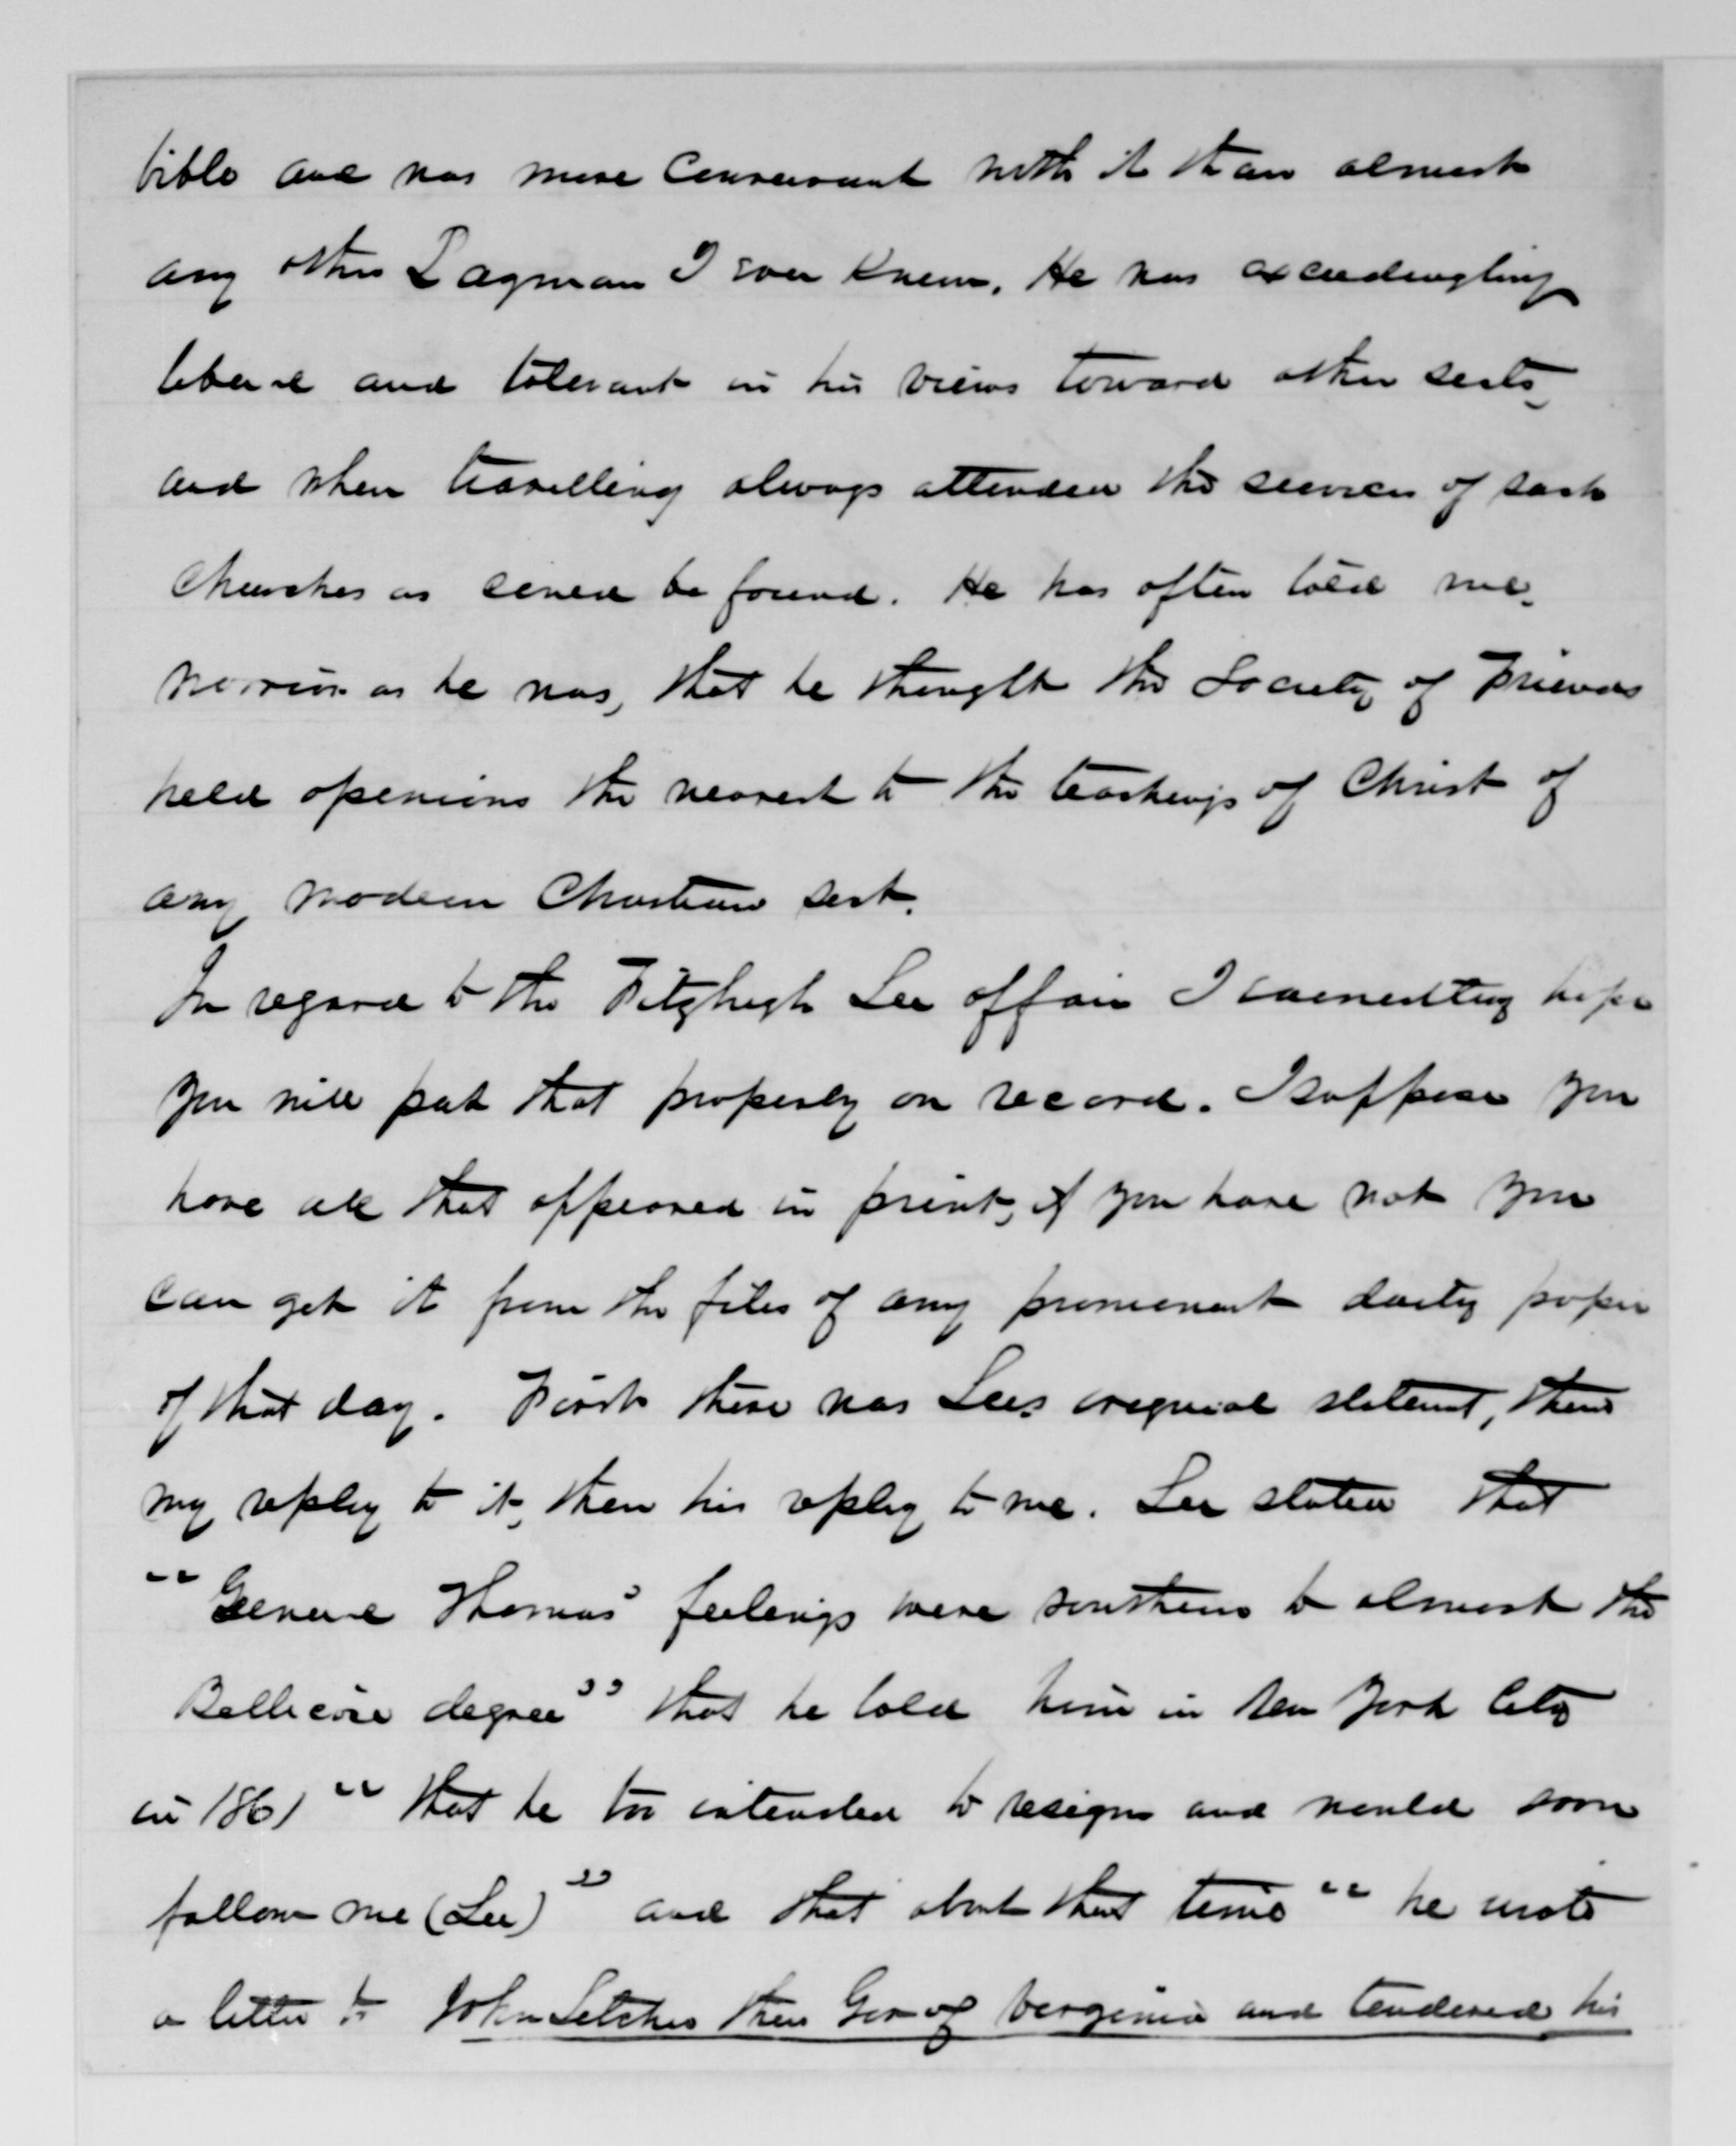 bible and was more conversant with it than almost
any other Layman I ever knew. He was exceedingling
liberal and tolerant in his views toward other sects,
and when travelling always attended the services of such
Churches as could be found. He has often told me,
warrior as he was, that he thought the Society of Friends
held openions the nearest to the teachings of Christ of
any modern Christian sect.
In regard to the Fitzhugh Lee affair I earnestly hope
you will put that properly on record. I suppose you
have all that appeared in print, if you have not you
can get it from the files of any prominent daily paper
of that day. First there was Lees original statemt, then
my reply to it, then his reply to me. Lee stated that
"General Thomas' feelings were southern to almost the
Bellicose degree" that he told him in New York City
in 1861 "that he too intended to resign and would soon
follow me (Lee)" and that about that time "he wrote
a letter to John Letcher then Gov of Virginia and tendered his